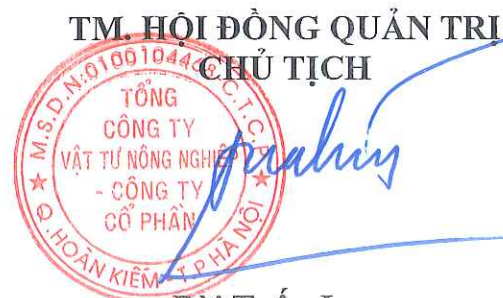 TM. HỘI ĐỒNG QUẢN TRỊ
CHỦ TỊCH
M.S.D.N:
C.T.C.P
TỔNG
CÔNG TY
VẬT TƯ NÔNG NGHIỆP
- CÔNG TY
CỔ PHẦN
Q.HOÀN KIẾM - T.P HÀ NỘI